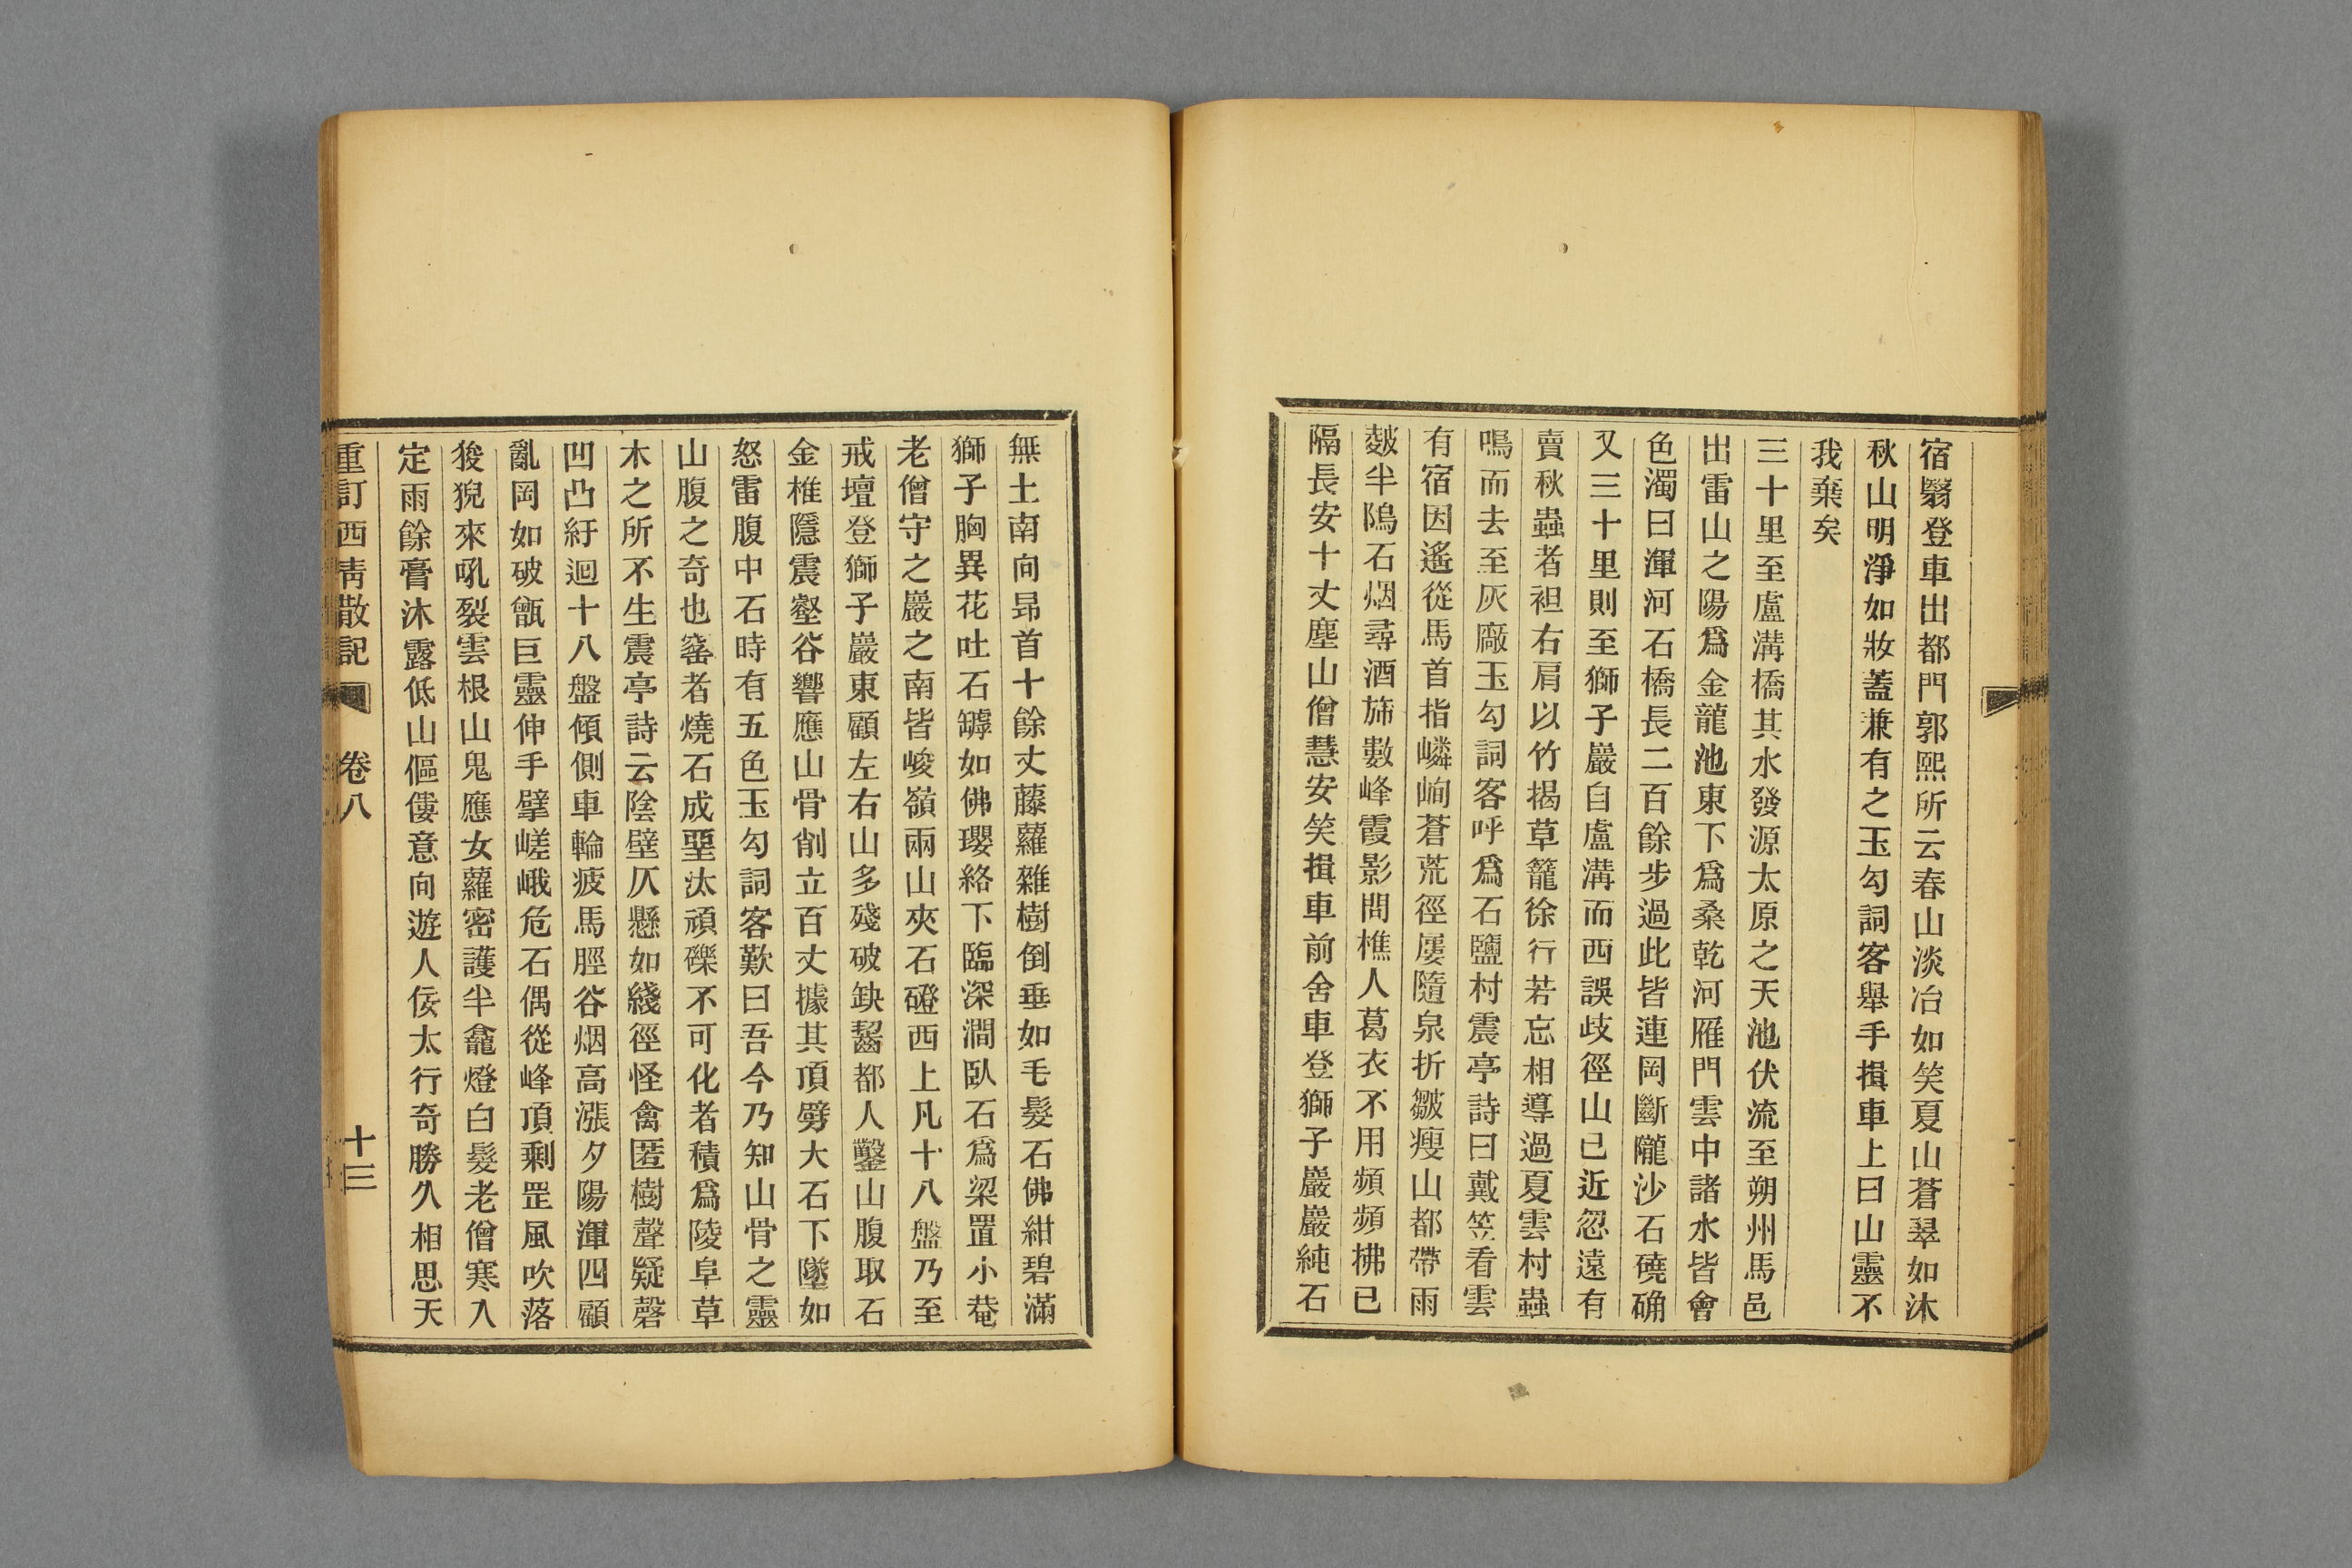 宿翳登車出都門郭熙所云春山淡冶如笑夏山蒼翠如沐
秋山明淨如妝蓋兼有之玉勾詞客舉手揖車上曰山靈不
我棄矣
三十里至盧溝橋其水發源太原之天池伏流至朔州馬邑
出雷山之陽爲金龍池東下爲桑乾河雁門雲中諸水皆會
色濁曰渾河石橋長二百餘步過此皆連岡斷隴沙石磽确
又三十里則至獅子巖自盧溝而西誤歧徑山已近忽遠有
賣秋蟲者袒右肩以竹揭草籠徐行若忘相導過夏雲村蟲
鳴而去至灰廠玉勾詞客呼爲石鹽村震亭詩曰戴笠看雲
有宿因遙從馬首指嶙峋蒼荒徑屢隨泉折皺瘦山都帶雨
皴半隖石烟尋酒斾數峰霞影問樵人葛衣不用頻頻拂已
隔長安十丈塵山僧慧安笑揖車前舍車登獅子巖巖純石
無土南向昂首十餘丈藤蘿雜樹倒垂如毛髮石佛紺碧滿
獅子胸異花吐石罅如佛瓔絡下臨深澗臥石爲梁置小菴
老僧守之巖之南皆峻嶺兩山夾石磴西上凡十八盤乃至
戒壇登獅子巖東顧左右山多殘破缺齧都人鑿山腹取石
金椎隱震壑谷響應山骨削立百丈據其頂劈大石下墜如
怒雷腹中石時有五色玉勾詞客歎曰吾今乃知山骨之靈
山腹之奇也窰者燒石成堊汰頑礫不可化者積爲陵阜草
木之所不生震亭詩云陰壁仄懸如綫徑怪禽匿樹聲疑磬
凹凸紆迴十八盤傾側車輪疲馬脛谷烟高漲夕陽渾四顧
亂岡如破甑巨靈伸手擘嵯峨危石偶從峰頂剩罡風吹落
狻猊來吼裂雲根山鬼應女蘿密護半龕燈白髮老僧寒入
定雨餘膏沐露低山傴僂意向遊人佞太行奇勝久相思天
重訂西青散記 卷八 十三